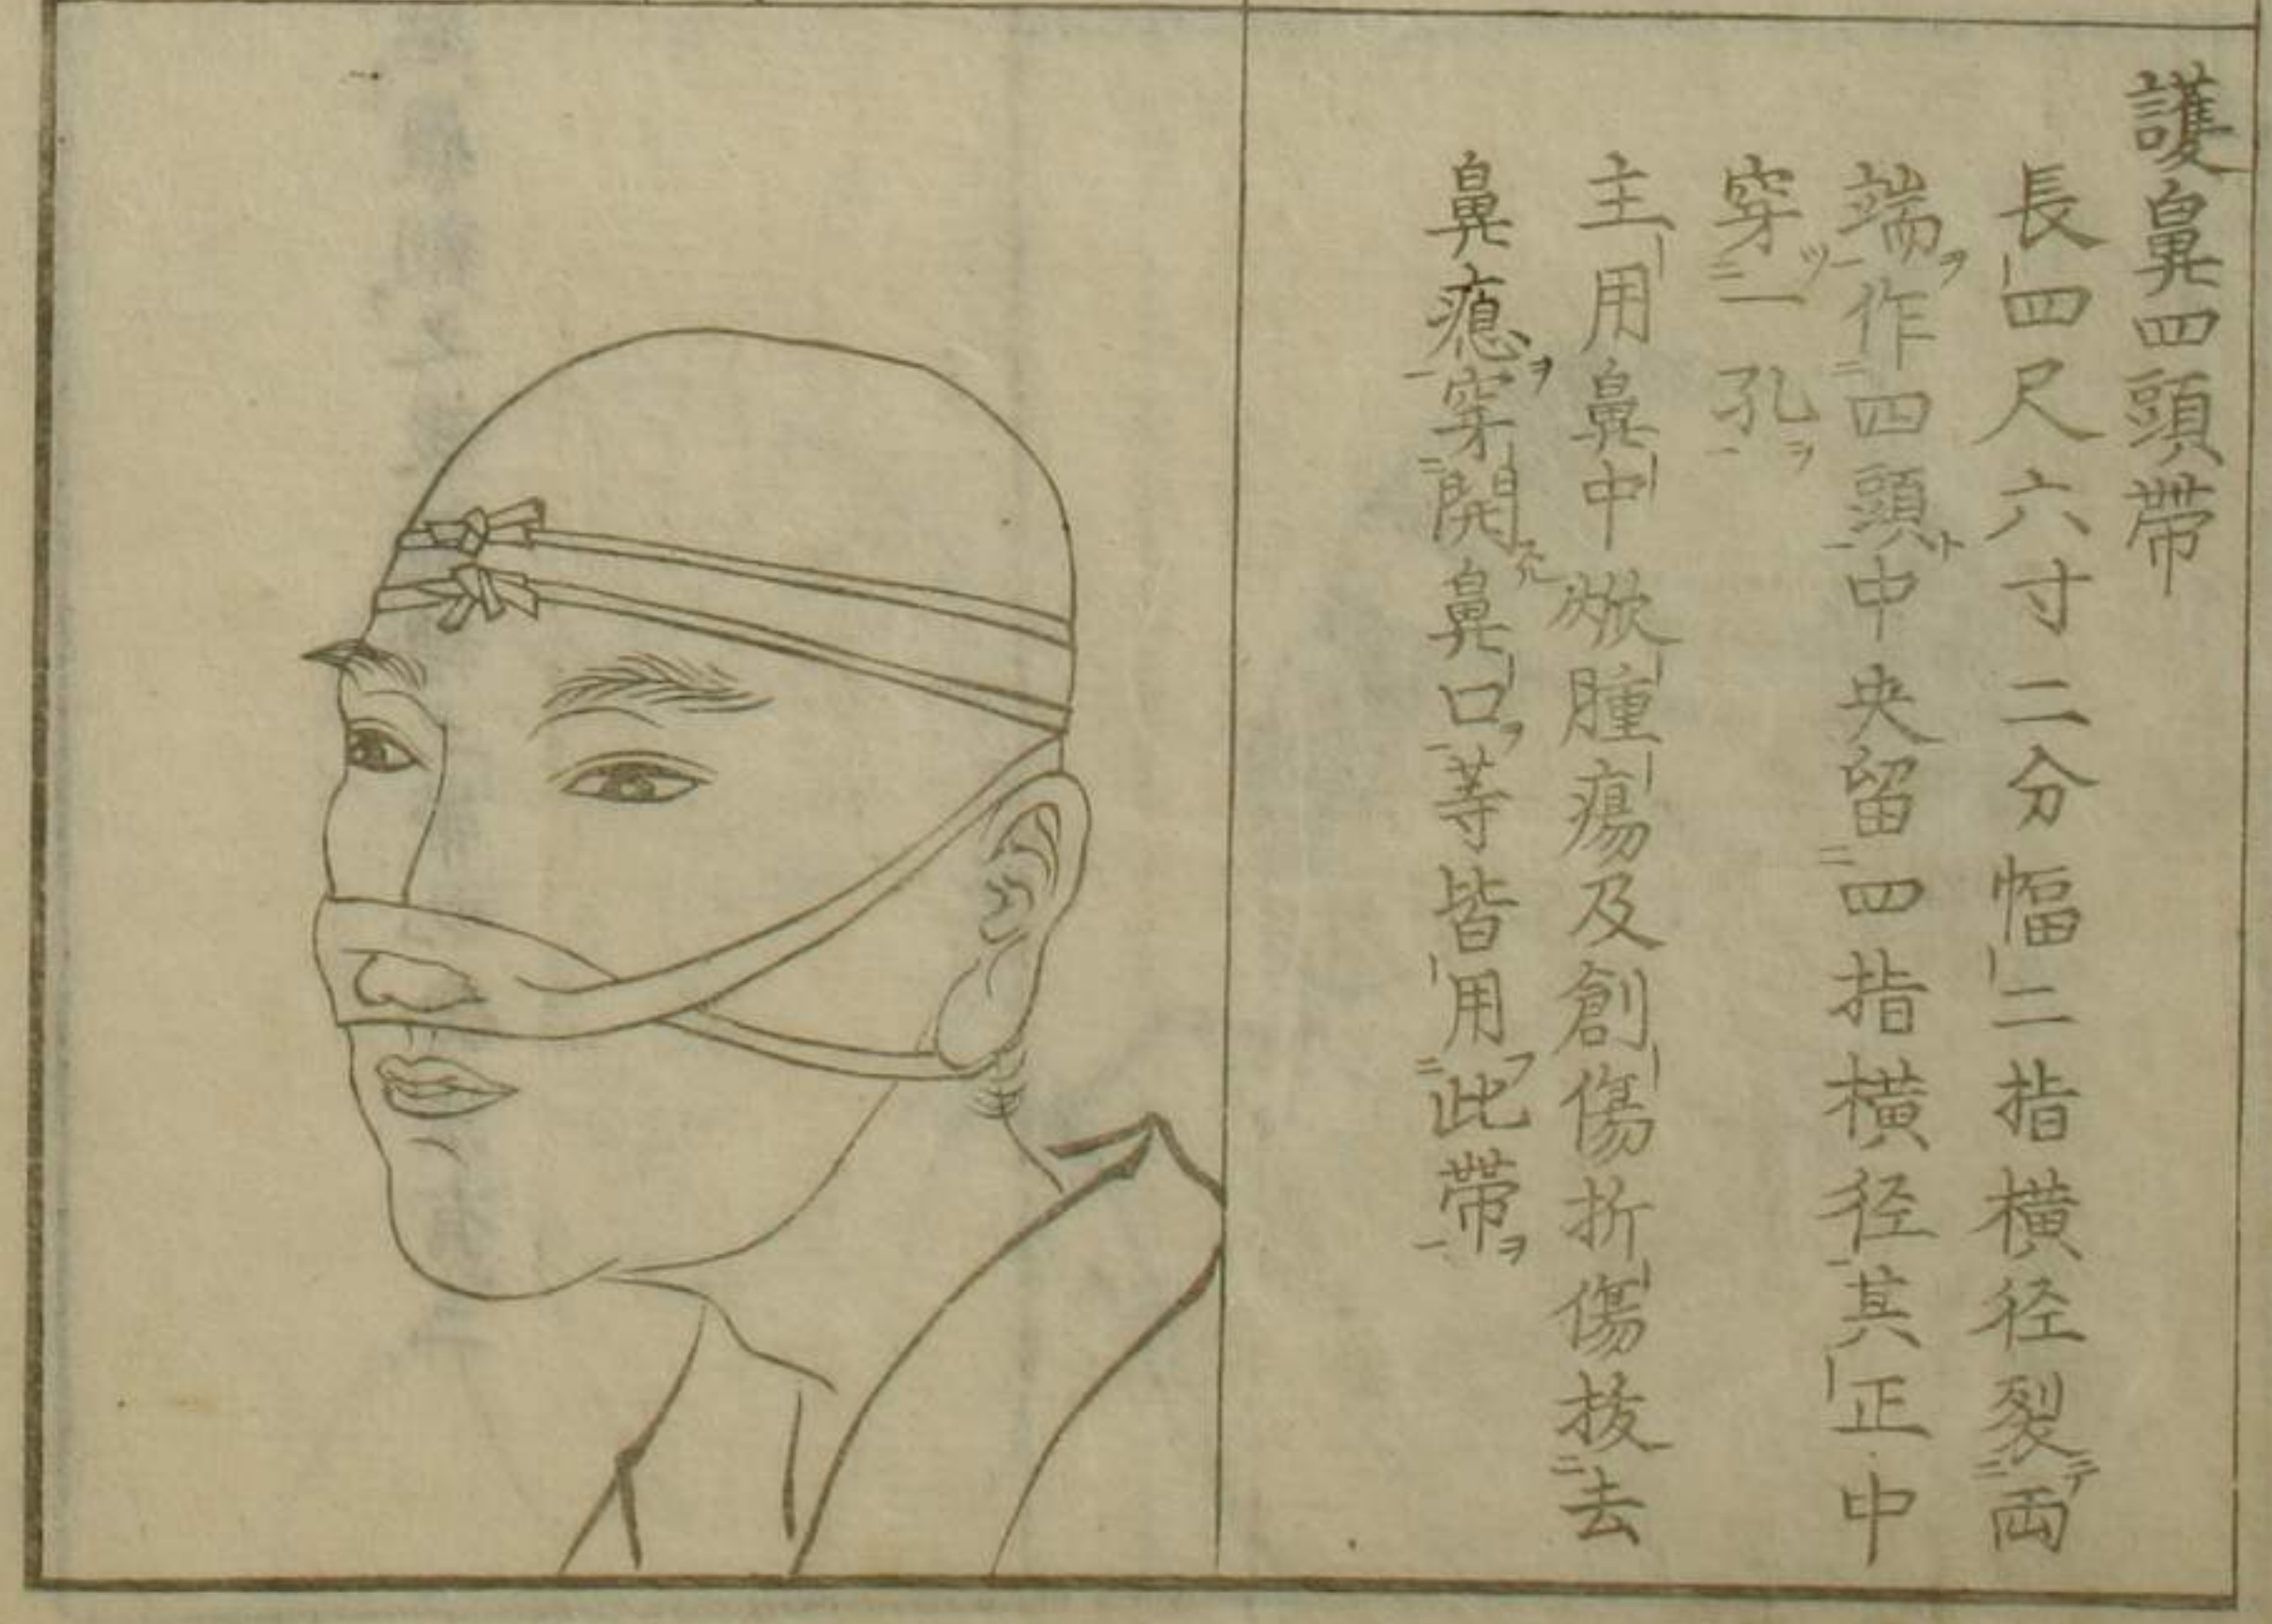 護鼻四頭帶
長四尺六寸二分幅二指横径裂両
端作四頭中央留四指横径其正中
穿一孔
主用鼻中焮腫瘍及創傷折傷抜去
鼻瘜穿開鼻口等皆用此帶